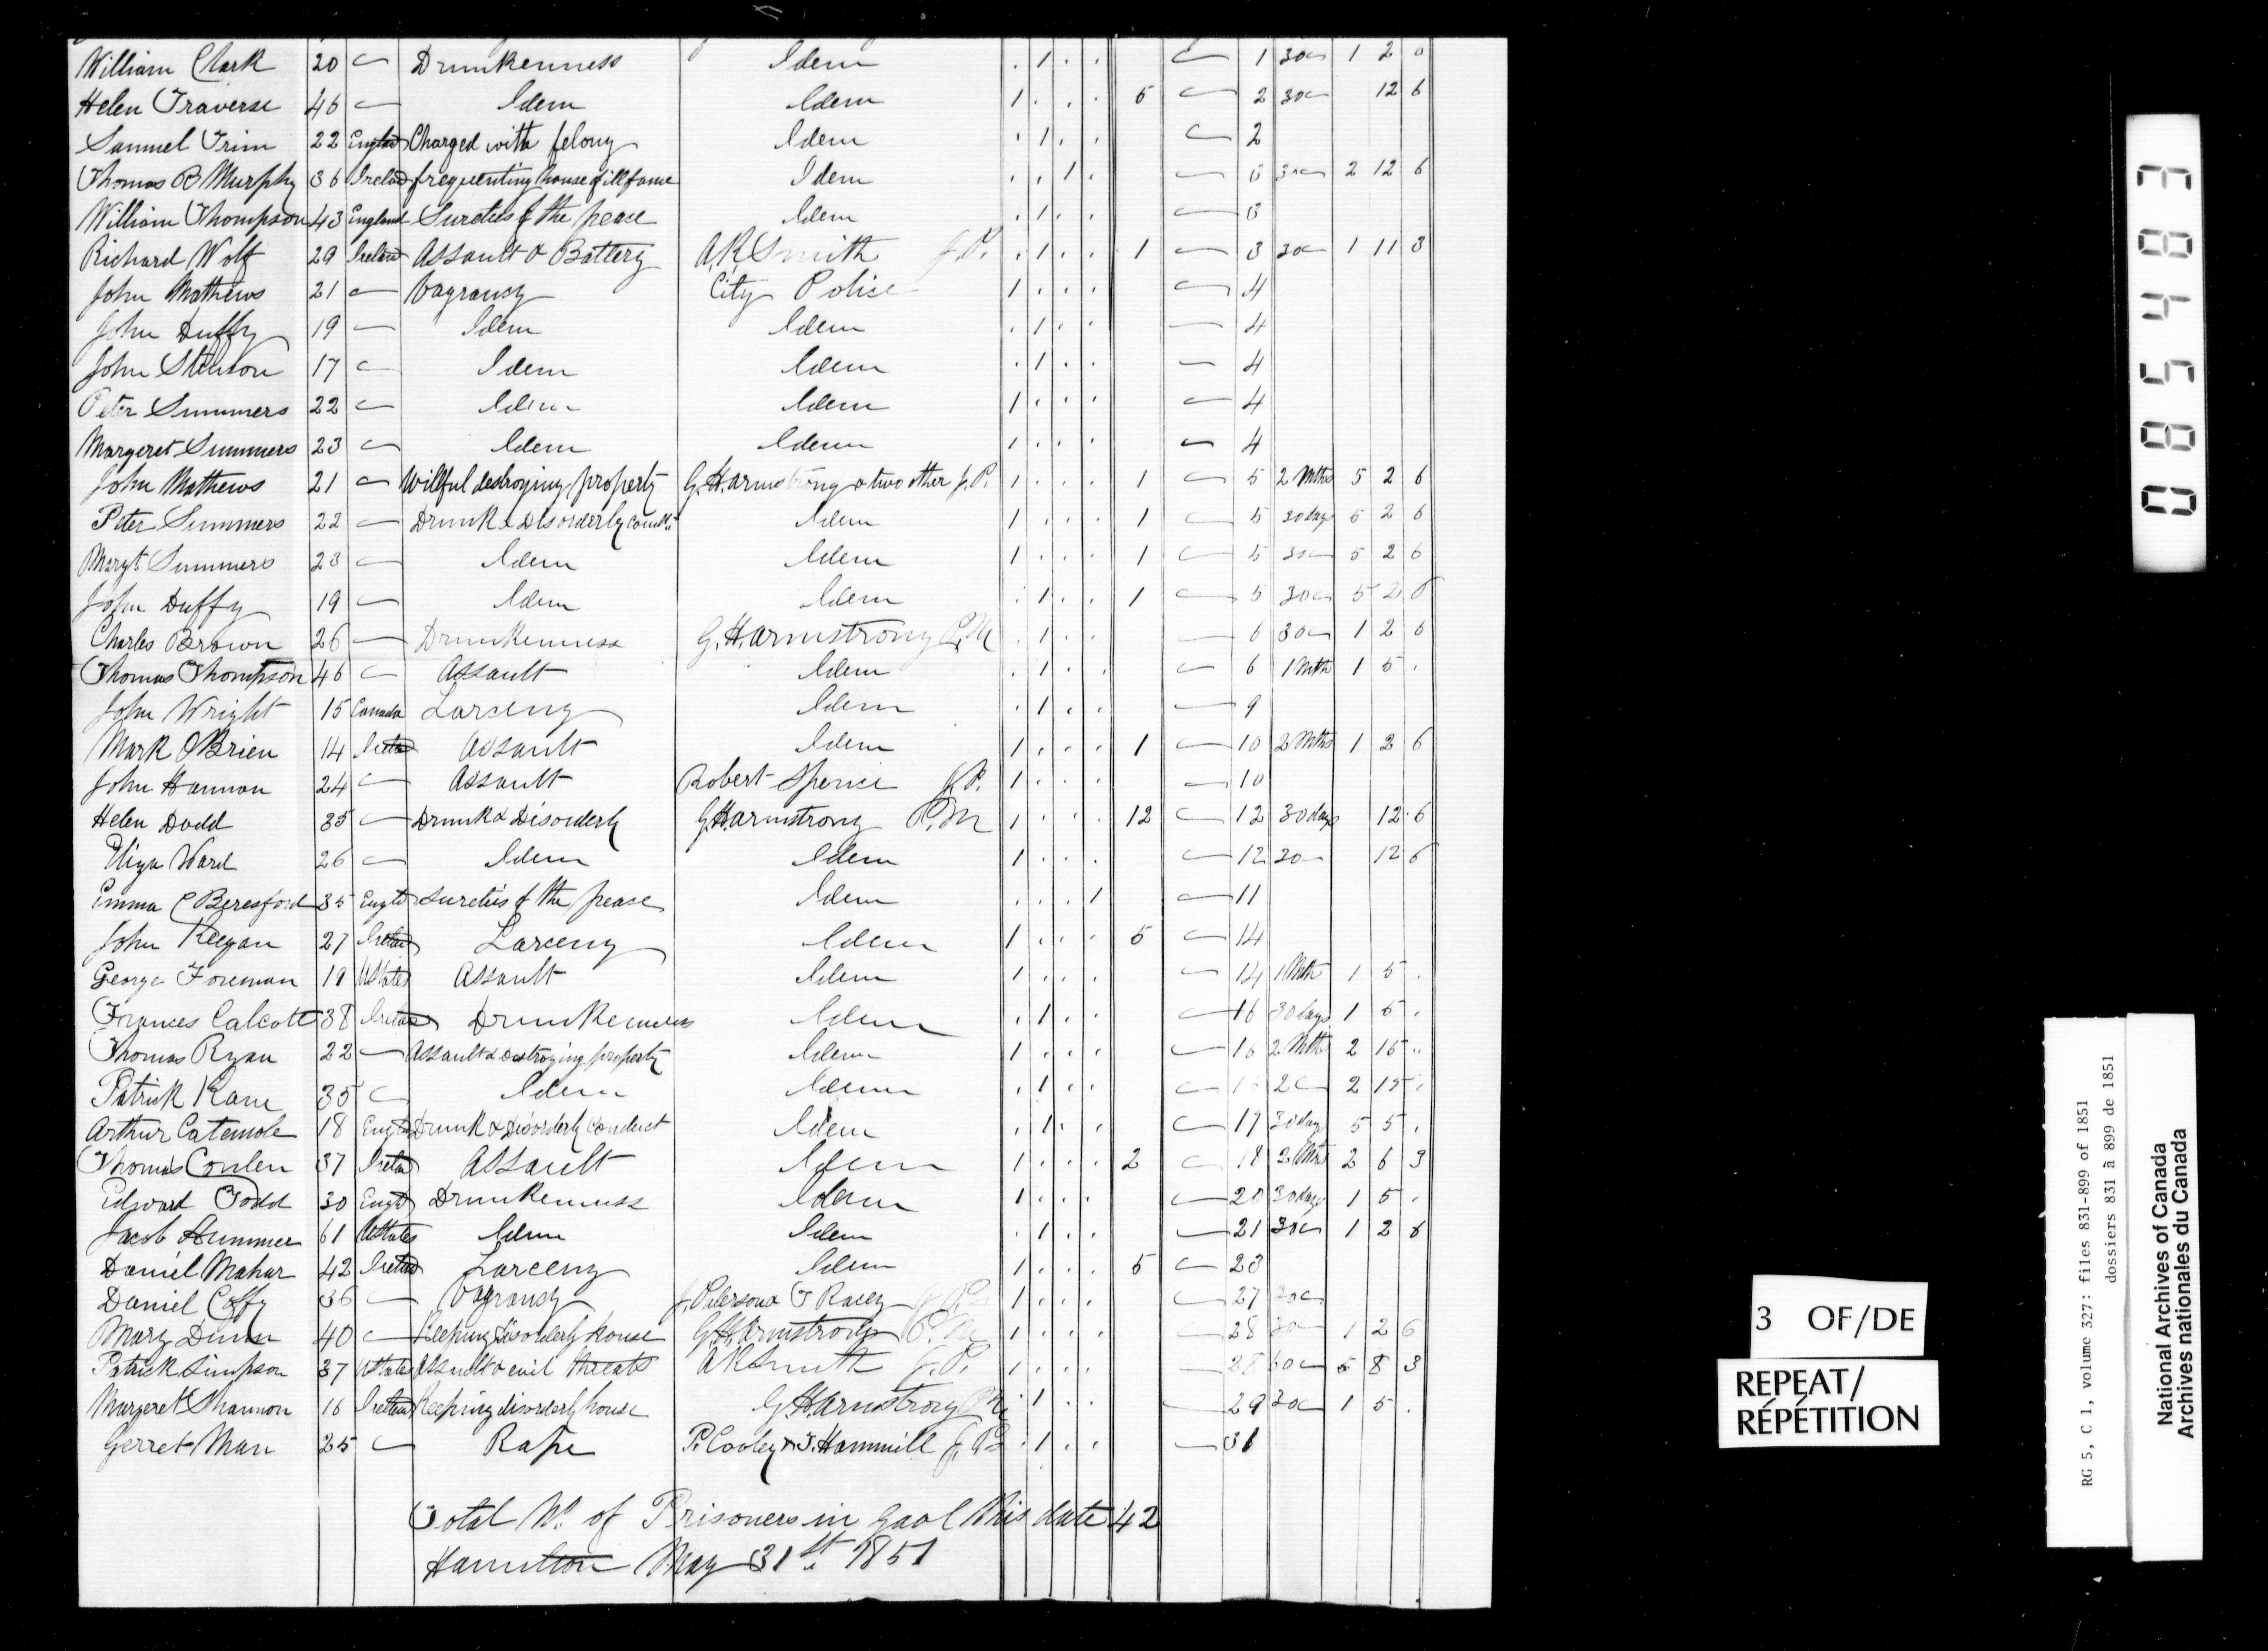 William Clark 20 — Drunkenness Idem . 1 . . — 1 30 — 1 2 0
Helen Traverse 46 — Idem Idem 1 . . . 5 — 2 30 — 12 6
Samuel Trim 22 Engld Charged with felony Idem . 1 . . — 2
Thomas B Murphy 36 Irelad frequenting house of ill fame Idem . . 1 . — 3 30 — 2 12 6
William Thompson 43 England Sureties of the peace Idem . 1 . . — 3
Richard Wolf 29 Irelad Assault & Battery A.K Smith J.P. . 1 . . 1 — 3 30 — 1 11 3
John Mathews 21 — Vagrancy City Police 1 . . . — 4
John Duffy 19 — Idem Idem . 1 . . — 4
John Stenson 17 — Idem Idem . 1 . . — 4
Peter Summers 22 — Idem Idem 1 . . . — 4
Margeret Summers 23 — Idem Idem 1 . . . — 4
John Mathews 21 — Willful destroying property G. H. Armstrong & two other J.P. 1 . . . 1 — 5 2 Mths 5 2 6
Peter Summers 22 — Drunk & Disorderly Idem 1 . . . 1 — 5 30 days 5 2 6
Margt Summers 23 — Idem Idem 1 . . . 1 — 5 30 — 5 2 6
John Duffy 19 — Idem Idem . 1 . . 1 — 5 30 — 5 2 6
Charles Brown 26 — Drunkenness G. H. Armstrong P.M . 1 . . — 6 30 — 1 2 6
Thomas Thompson 46 — Assault Idem . 1 . . — 6 1 Mth 1 5 .
John Wright 15 Canada Larceny Idem . 1 . . — 9
Mark OBrien 14 Irelad Assault Idem 1 . . . 1 — 10 2 Mths 1 2 6
John Hannon 24 — Assault Robert Spence J.P. 1 . . . — 10
Helen Dodd 35 — Drunk & Disorderly G.H.Armstrong P.M 1 . . . 12 — 12 30 days 12 6
Eliza Ward 26 — Idem Idem 1 . . . — 12 30 — 12 6
Emma C Beresford 35 Engld sureties of the peace Idem . . . 1 — 11
John Keegan 27 Irelad Larceny Idem 1 . . . 5 — 14
George Foreman 19 UStates Assault Idem 1 . . . — 14 1 Mth 1 5 .
Frances Calcott 38 Irelad Drunkenness Idem . 1 . . — 16 30 days 1 5 .
Thomas Ryan 22 — Assault & destroying property Idem 1 . . . — 16 2 Mths 2 15 ..
Patrick Kane 35 — Idem Idem . 1 . . — 16 2 — 2 15 .
Arthur Catemole 18 Engld Drunk & Disorderly Conduct Idem . 1 . . — 17 30 day 5 5 .
Thomas Conlen 37 Irelad Assault Idem 1 . . . 2 — 18 2 Mths 2 6 3
Edward Todd 30 Engld Drunkenness Idem 1 . . . — 20 30 days 1 5 .
Jacob Hummer 61 UStates Idem Idem . 1 . . — 21 30 — 1 2 6
Daniel Mahar 42 Irelad Larceny Idem 1 . . . 5 — 23
Daniel Coffy 36 — Vagrancy T Racey 1 . . . — 27 30 —
Mary Dunn 40 — Keeping disorderly house G.H. Armstrong P.M 1 . . . — 28 30 — 1 2 6
Patrick Simpson 37 UStates Assault & evil threats A K Smith J.P. 1 . . . — 28 60 — 5 8 3
Margeret Shannon 16 Irelad Keeping disorderly house G.H.Armstrong P.M . 1 . . — 29 30 — 1 5 .
Gerret Man 25 — Rape P. Cooley & T. Hammill J.Ps . 1 . . — 31
Total No. of Prisoners in Gaol this date 42
Hamilton May 31st 1851
085483
3 OF/DE
REPEAT/
RÉPÉTITION
RG 5, C 1, volume 327: files 831-899 of 1851
dossiers 831 à 899 de 1851
National Archives of Canada
Archives nationales du Canada